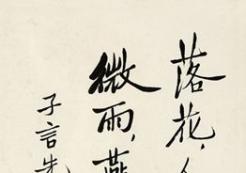 落花，
微雨，燕
子言先